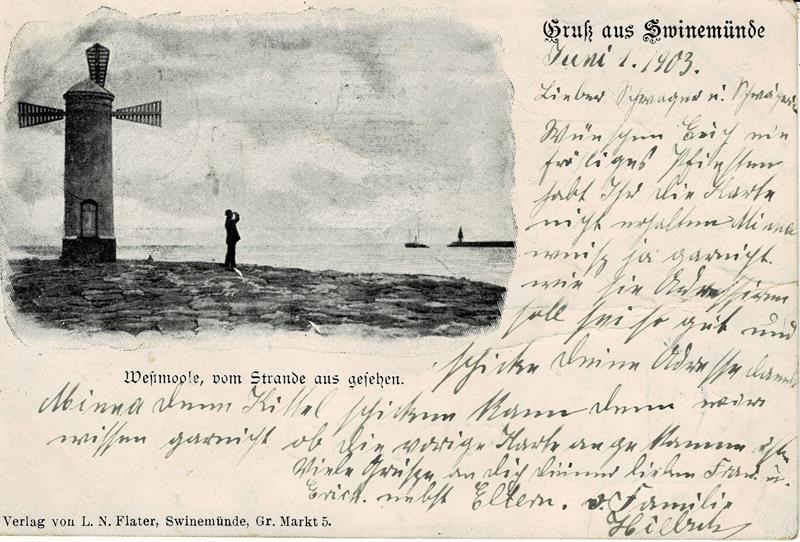 Gruß aus Swinemünde
Juni 1. 1903.
Lieber Schwager u. Schwäger
Wünschen Euch ein
fröhliges Pfingsten
habt Ihr die Karte
nicht erhalten Minna
weiß ja garnicht
wie sie Adressiren
soll sei so gut und
schicke deine Adresse damit
Minna denn Kittel schicken kann denn wir
wissen garnicht ob die vorige Karte angekommen ist
Viele Grüße an dich deiner lieben Frau u.
Erich. nebst Eltern. v. Familie
Westmoole, vom Strande aus gesehen.
Verlag von L. N. Flater, Swinemünde, Gr. Markt 5.